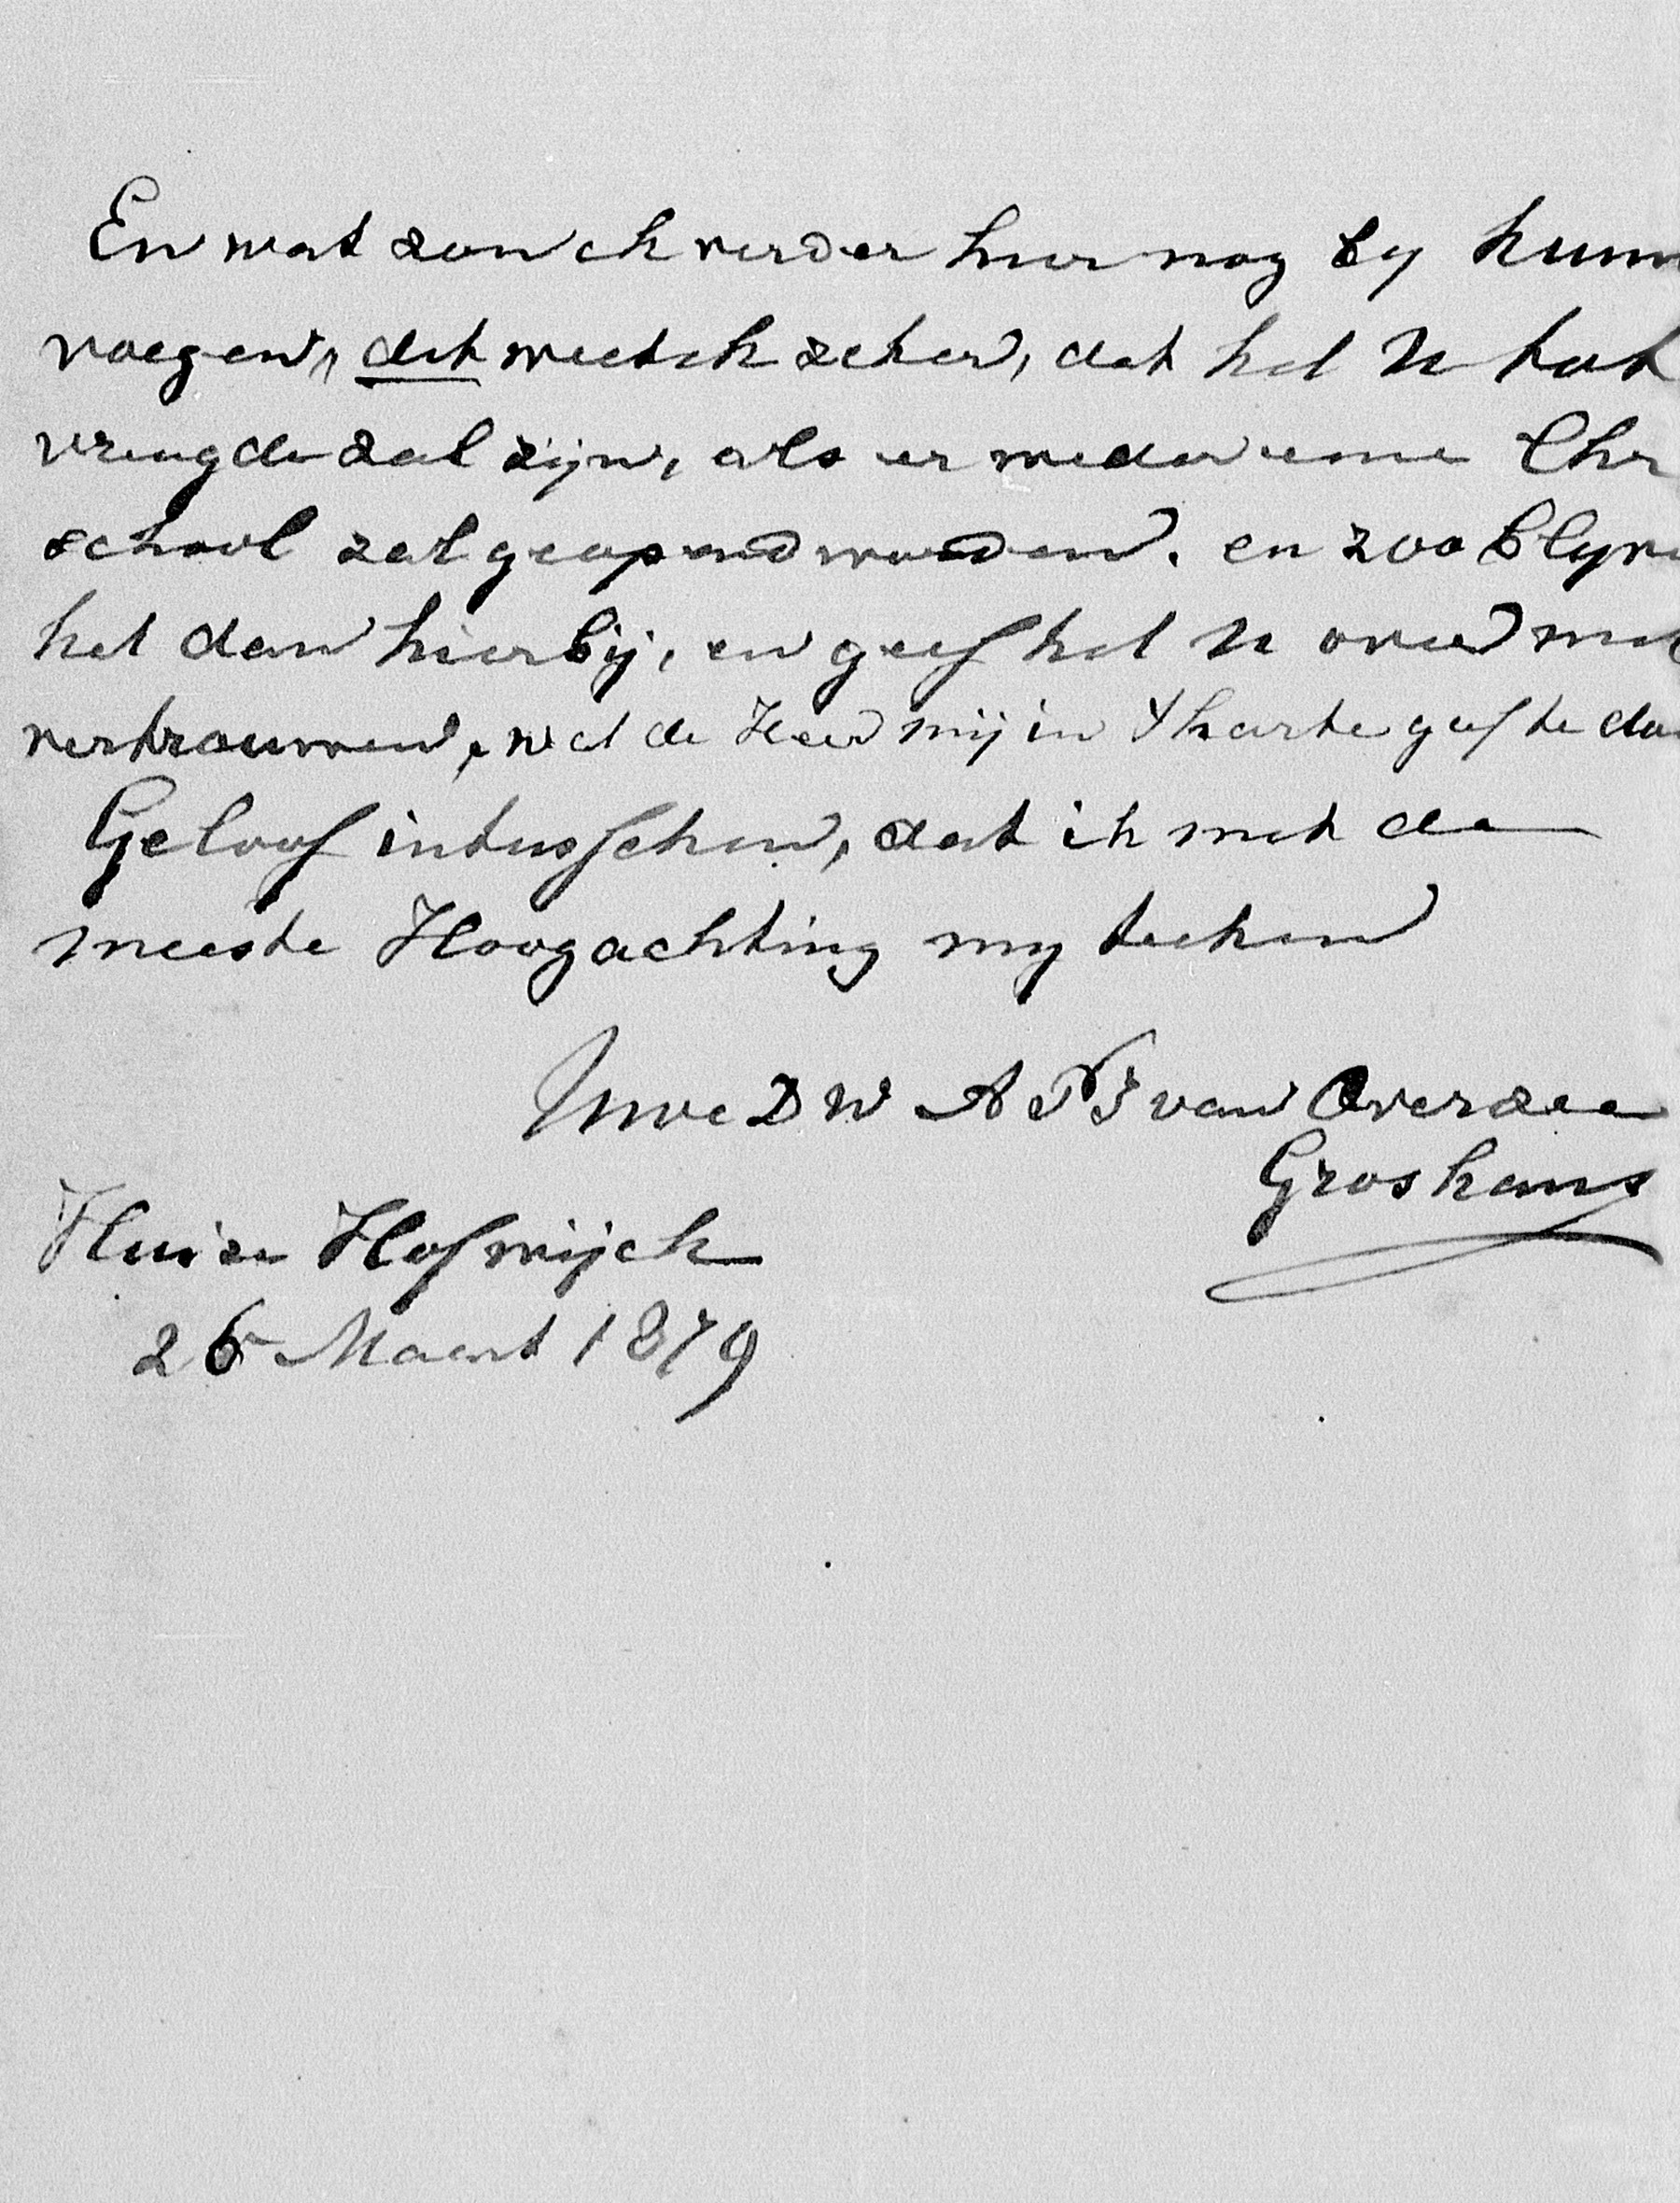 En wat zou ik verder hier nog by kunn
voegen, dit weet ik zeker, dat het U tot
vreugde zal zijn, als er weder eene Chr
school zal geopend worden. en zoo blyve
het dan hierbij, en geef het U over met
vertrouwen, wat de Heer mij in 't harte geeft te doe
Geloof intusschen, dat ik met de
meeste Hoogachting my teeken
Uwe D W A P J van Overzee
Groshans
Huize Hofwijck
26 Maart 1879